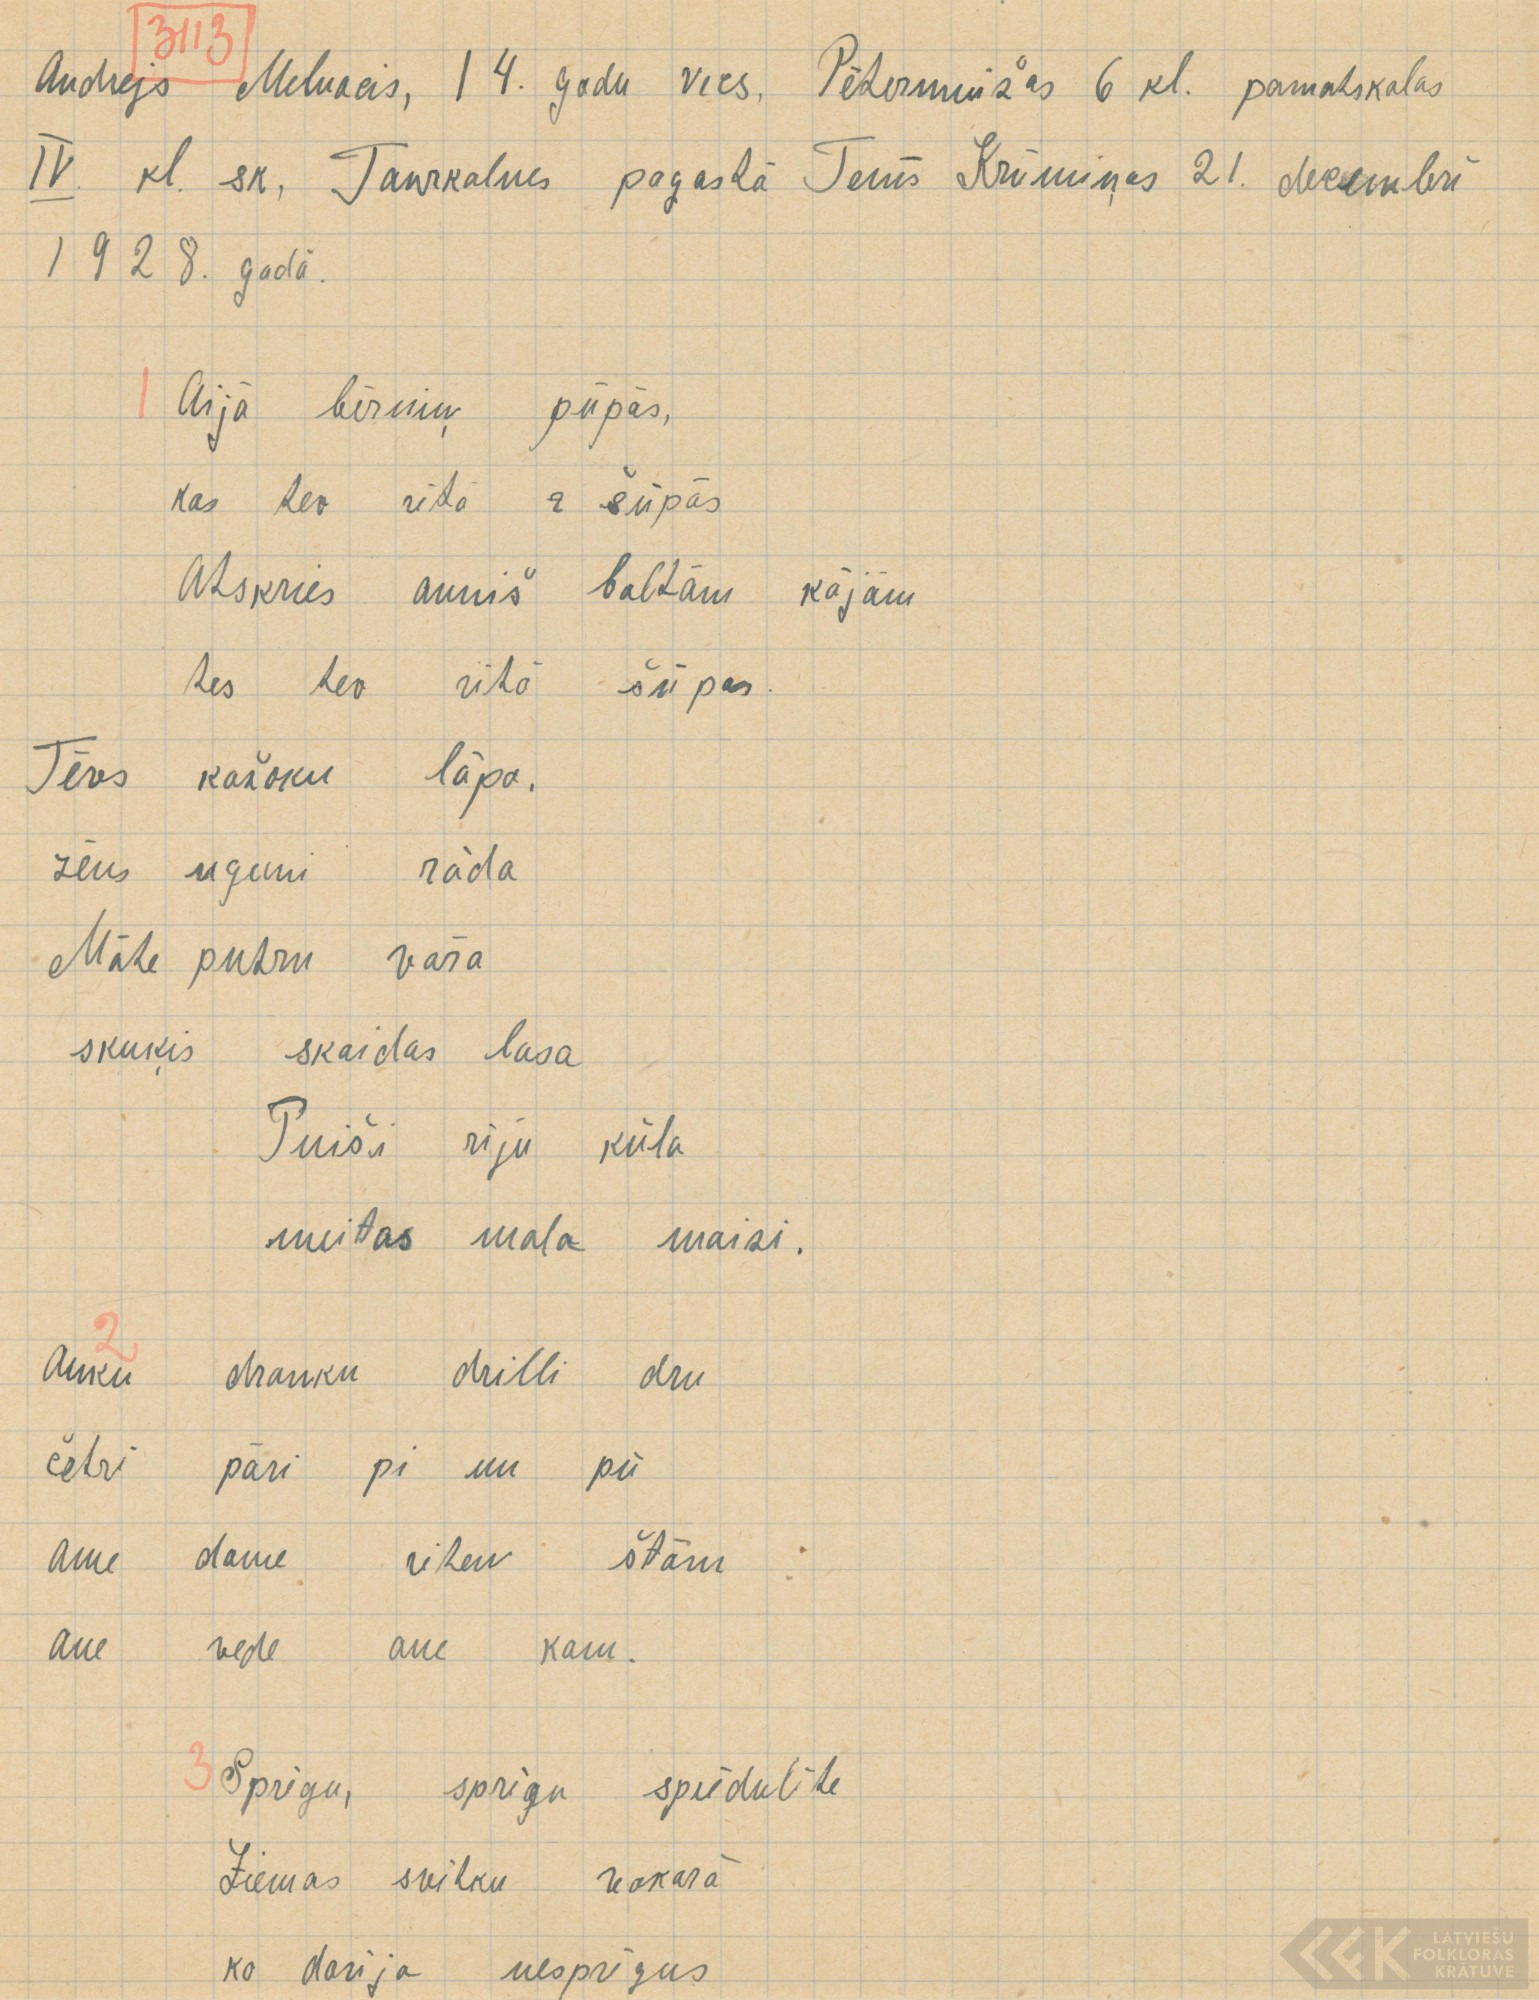 3113
Andrejs Melnacis, 14. gadu vecs, Pētermuižas 6 kl. pamatskolas
IV. kl. sk, Taurkalnes pagastā Krūmiņas 21. decembrī
1928. gadā.
1 Aijā bērniņ pūpās,
kas tev rītā šūpās
Atskries aunīš baltām kājām
tes tev rītā šūpas.
Tēvs kažoku lāpa,
zēns uguni rāda
Māte putru vāra
skuķis skaidas lasa
Puiši riju kūla
meitas mala maizi.
2
Anku dranku drilli dru
četri pāri pi un pū
ame dame riten štām
ane vede ane kam.
3 Sprēgu, sprēgu spiedulīte
Ziemas svētku vakarā
ko darīja nesprēgus
LATVIEŠU
FOLKLORAS
KRĀTUVE